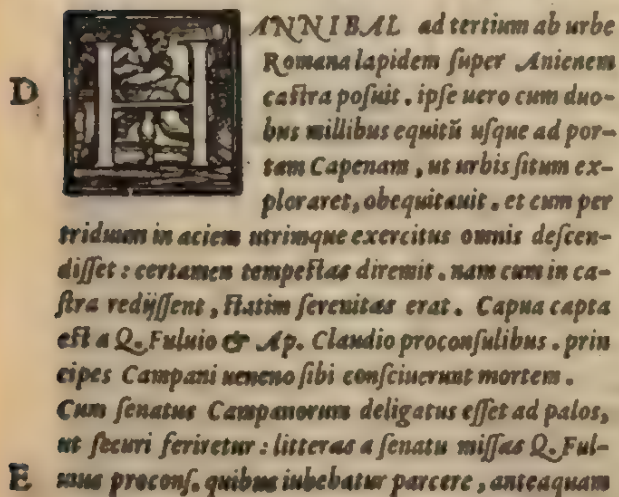 HANNIBAL ad tertium ab urbe
Romana lapidem ſuper Anienem
D caſtra poſuit. ipſe uero cum duo-
bus millibus equitũ uſque ad por-
tam Capenam, ut urbis ſitum ex-
ploraret, obequitauit. et cum per
triduum in aciem utrimque exercitus omnis deſcen-
diſſet: certamen tempeſtas diremit. nam cum in ca-
ſtra redijſſent, ſtatim ſerenitas erat. Capua capta
eſt a Q. Fuluio & Ap. Claudio proconſulibus. prin
cipes Campani ueneno ſibi conſciuerunt mortem.
Cum ſenatus Campanorum deligatus eſſet ad palos,
ut ſecuri feriretur: litteras a ſenatu miſſas Q. Ful-
E uius proconſ. quibus iubebatur parcere, anteaquam